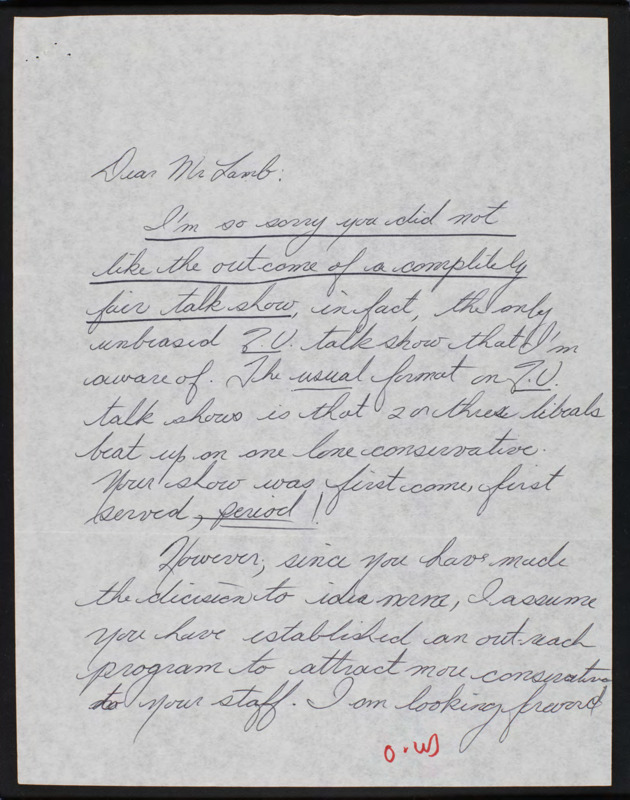 Dear Mr Lamb:
I'm so sorry you did not
like the outcome of a completely
fair talk show, in fact, the only
unbiased T.V. talk show that I'm
aware of. The usual format on T.V.
talk shows is that 2 or three liberals
beat up on one lone conservative.
Your show was, first come, first
served, period!
However, since you have made
the dicision to idea norm, I assume
you have established an out-reach
program to attract more conservative
to your staff. I am looking forward